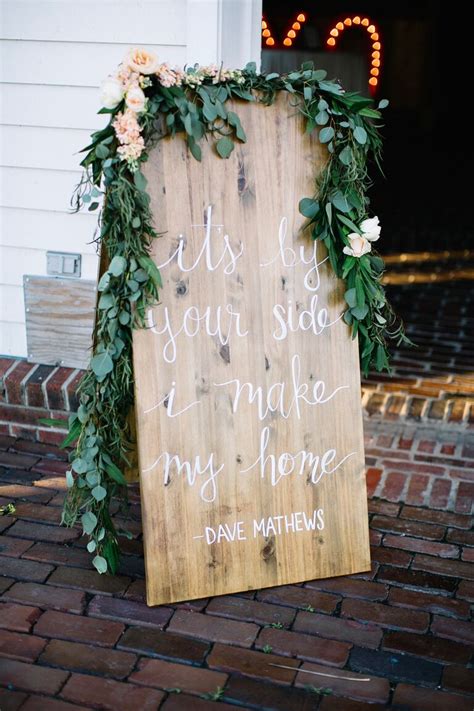 it's by
your side
i make
my home
-DAVE MATHEWS